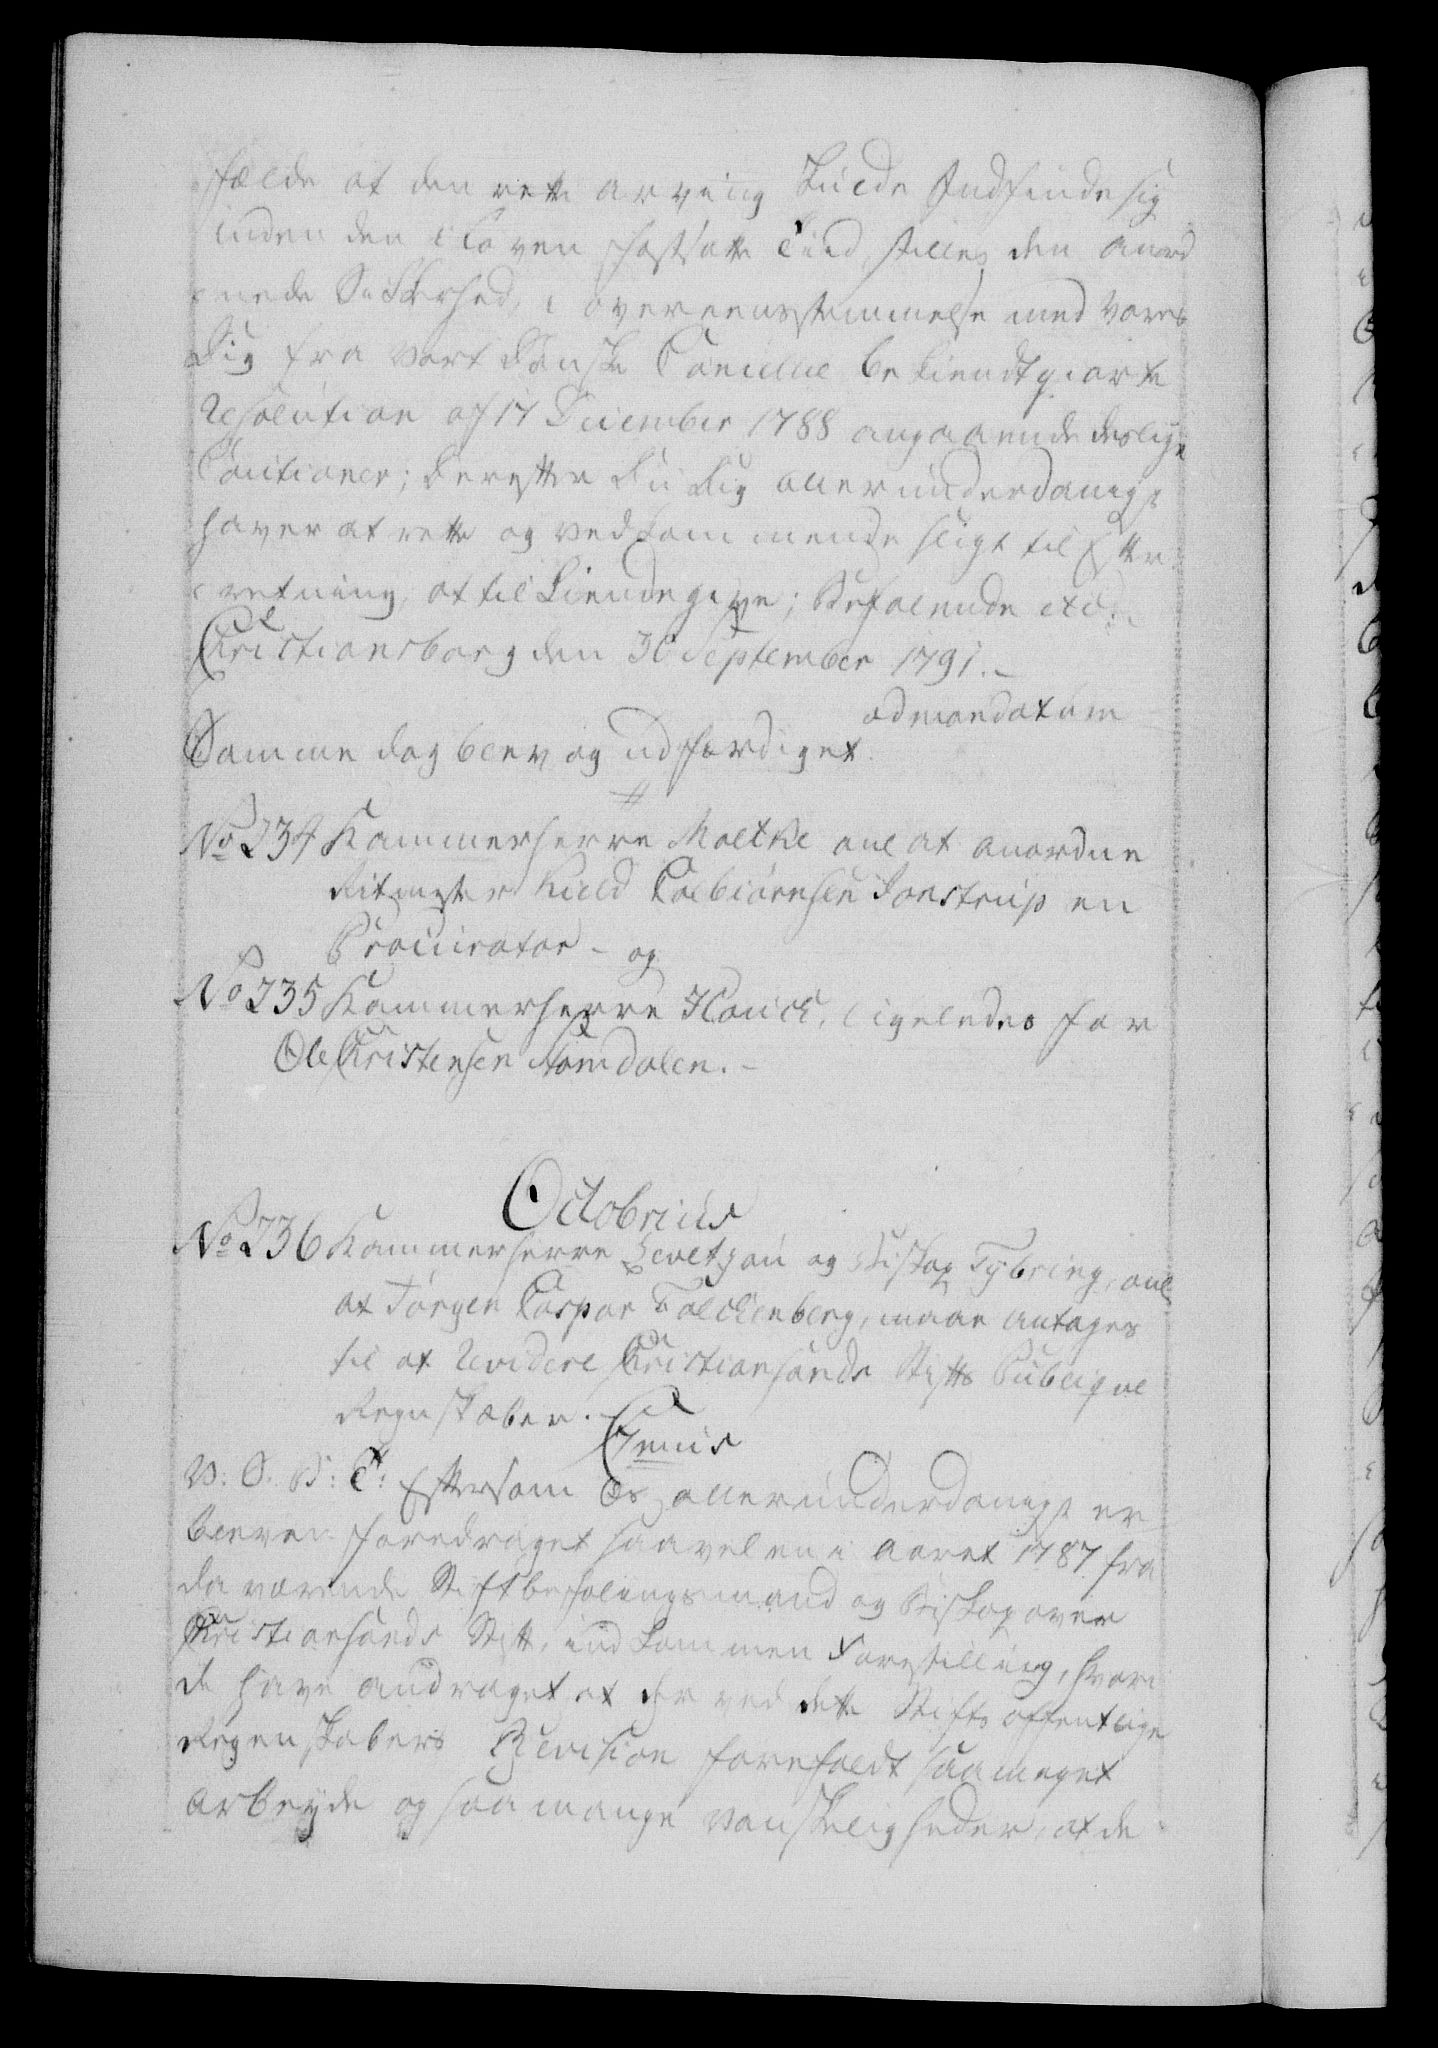 fælde at den rette arving kunde Indfinde sig
inden den i Loven fastsatte Tiid, stilles den anord¬
nede Sikkerhed, i overeensstemmelse med Vores
Dig fra vort Danske Cancellie bekiendtgiorte
Resolution af 17 December 1788 angaaende deslige
Cautioner; Derefter Du dig allerunderdanigst
haver at rette og vedkommende sligt til Efter¬
retning at tilkiendegive; Befalende etc:
Christiansborg den 30 September 1791.-
ad mandatum
Samme dag blev og udfærdiget
No 234 Kammerherre Moltke anl at anordne
Ritmester Kield Tolbiørnsen Jonstrup en
Procurator - og
No 235 Kammerherre Hauch, ligeledes for
Ole Christensen Homdalen.-
Octobrius
No 236 Kammerherre Levetzau og Biskop Tybring, anl
at Jørgen Caspar Falckenberg, maae antages
til at Revidere Christiansands Stifts Publique
Regnskaber.
C7mus
V: G. B: T: Eftersom Os allerunderdanigst er
bleven foredraget saavel en i Aaret 1787 fra
da værende Stiftbefalingsmand og Biskop over
Christiansands Stift, indkommen Forestilling, hvori
de have andraget at der ved dette Stifts offentlige
Regenskabers Revision forefaldt saa meget
Arbeyde og saa mange vanskeligheder, at de